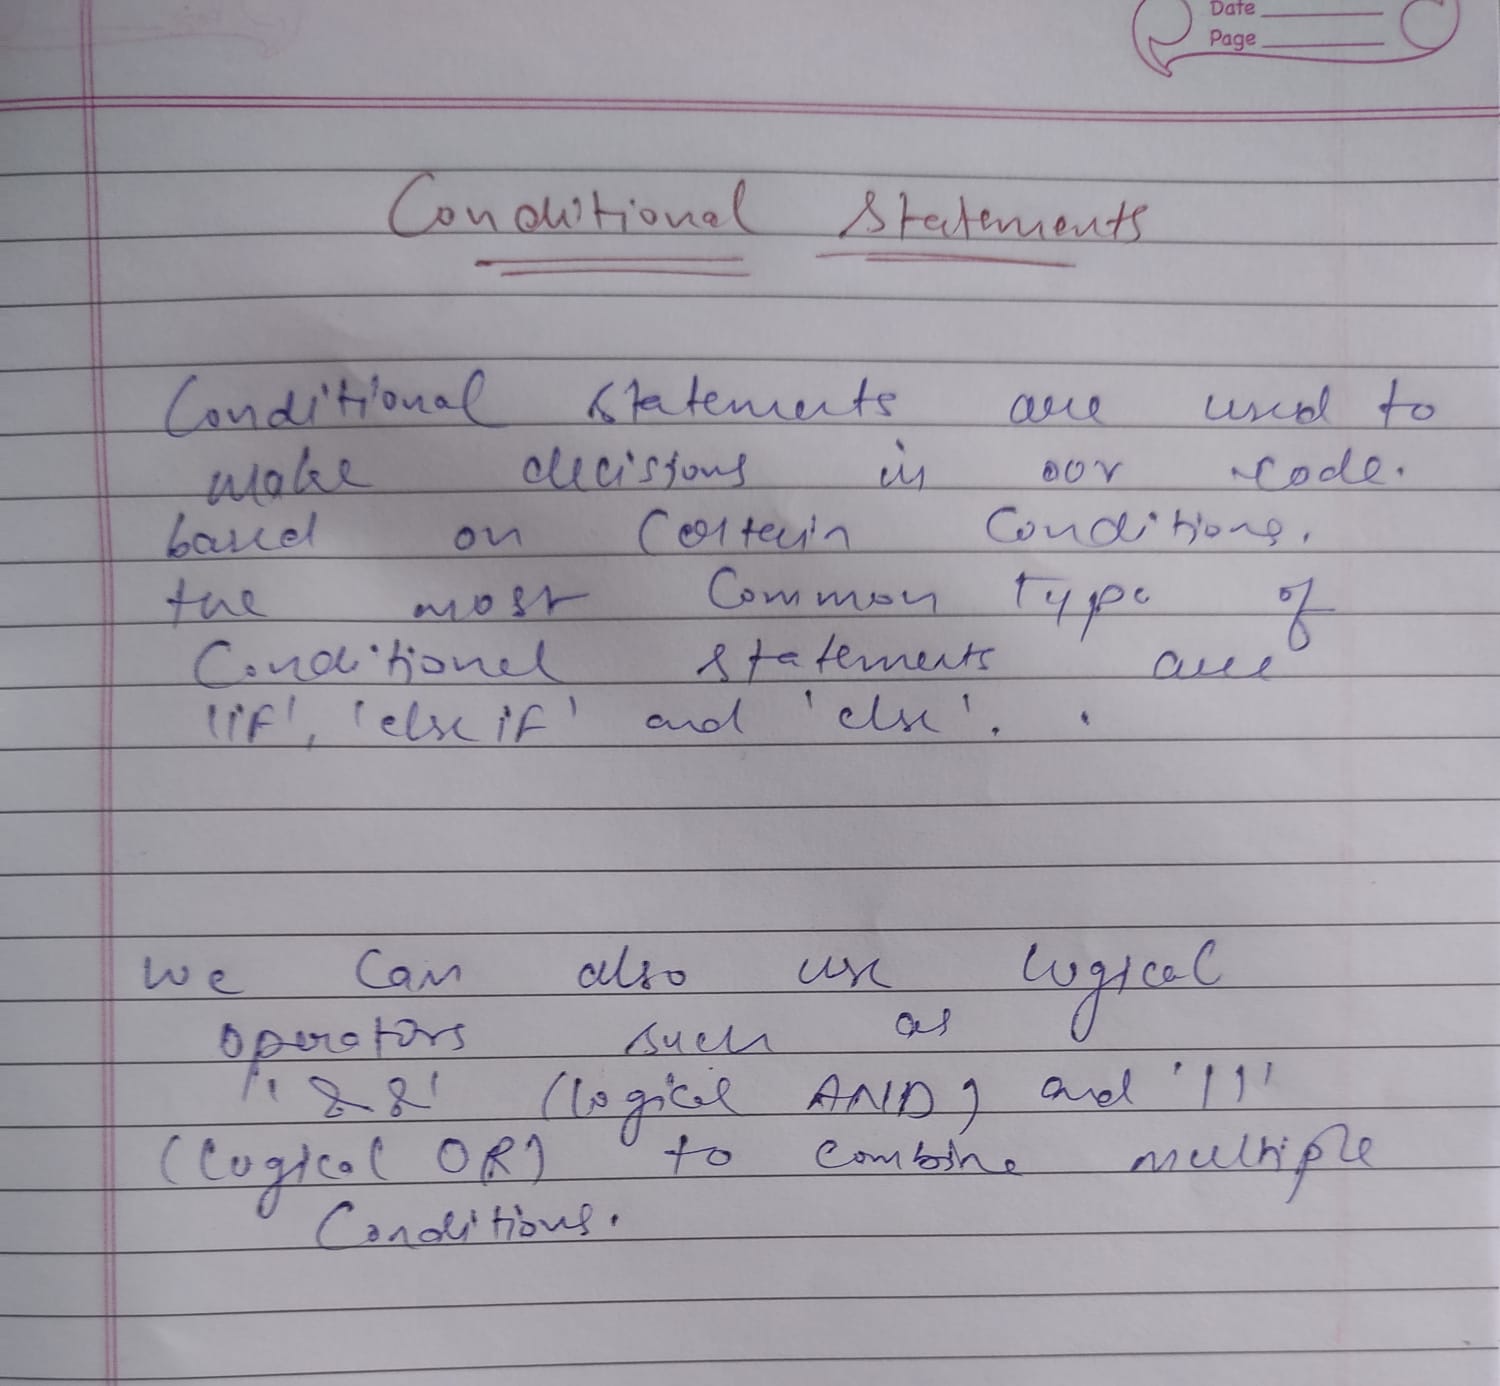 Date
Page
Conditional Statements
Conditional statements are used to
make decisions in our code.
based on certain Conditions.
the most Common Type of
Conditional statements are
'if', 'else if' and 'else'.
We Can also use logical
operators such as
'&&' (logical AND) and '||'
(logical OR) to combine multiple
Conditions.